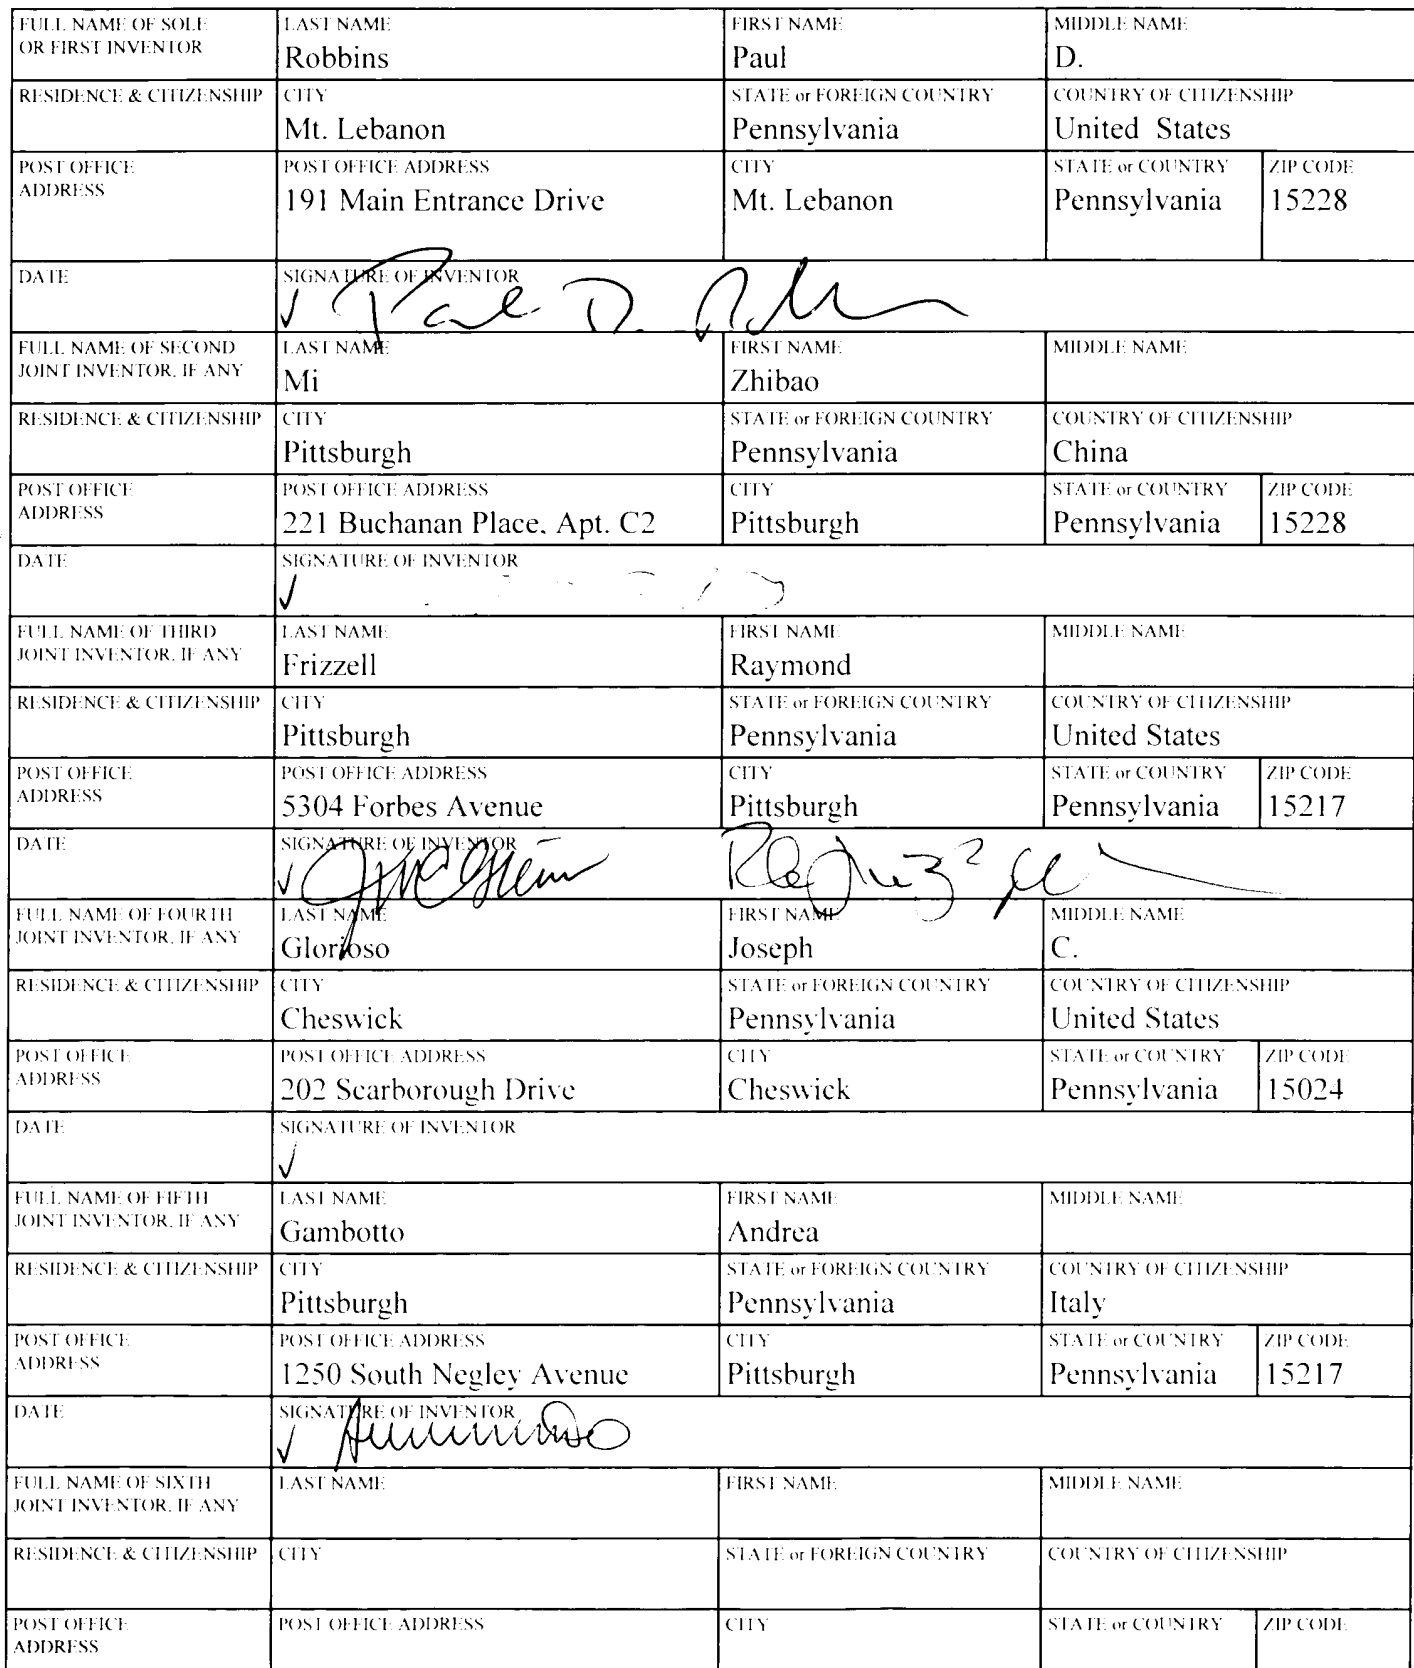 FULL NAME OF SOLE OR FIRST INVENTOR LAST NAME Robbins FIRST NAME Paul MIDDLE NAME D.
RESIDENCE & CITIZENSHIP CITY Mt. Lebanon STATE or FOREIGN COUNTRY Pennsylvania COUNTRY OF CITIZENSHIP United States
POST OFFICE ADDRESS POST OFFICE ADDRESS 191 Main Entrance Drive CITY Mt. Lebanon STATE or COUNTRY Pennsylvania ZIP CODE 15228
DATE SIGNATURE OF INVENTOR Paul D.
FULL NAME OF SECOND JOINT INVENTOR, IF ANY LAST NAME Mi FIRST NAME Zhibao MIDDLE NAME
RESIDENCE & CITIZENSHIP CITY Pittsburgh STATE or FOREIGN COUNTRY Pennsylvania COUNTRY OF CITIZENSHIP China
POST OFFICE ADDRESS POST OFFICE ADDRESS 221 Buchanan Place, Apt. C2 CITY Pittsburgh STATE or COUNTRY Pennsylvania ZIP CODE 15228
DATE SIGNATURE OF INVENTOR
FULL NAME OF THIRD JOINT INVENTOR, IF ANY LAST NAME Frizzell FIRST NAME Raymond MIDDLE NAME
RESIDENCE & CITIZENSHIP CITY Pittsburgh STATE or FOREIGN COUNTRY Pennsylvania COUNTRY OF CITIZENSHIP United States
POST OFFICE ADDRESS POST OFFICE ADDRESS 5304 Forbes Avenue CITY Pittsburgh STATE or COUNTRY Pennsylvania ZIP CODE 15217
DATE SIGNATURE OF INVENTOR
FULL NAME OF FOURTH JOINT INVENTOR, IF ANY LAST NAME Glorioso FIRST NAME Joseph MIDDLE NAME C.
RESIDENCE & CITIZENSHIP CITY Cheswick STATE or FOREIGN COUNTRY Pennsylvania COUNTRY OF CITIZENSHIP United States
POST OFFICE ADDRESS POST OFFICE ADDRESS 202 Scarborough Drive CITY Cheswick STATE or COUNTRY Pennsylvania ZIP CODE 15024
DATE SIGNATURE OF INVENTOR
FULL NAME OF FIFTH JOINT INVENTOR, IF ANY LAST NAME Gambotto FIRST NAME Andrea MIDDLE NAME
RESIDENCE & CITIZENSHIP CITY Pittsburgh STATE or FOREIGN COUNTRY Pennsylvania COUNTRY OF CITIZENSHIP Italy
POST OFFICE ADDRESS POST OFFICE ADDRESS 1250 South Negley Avenue CITY Pittsburgh STATE or COUNTRY Pennsylvania ZIP CODE 15217
DATE SIGNATURE OF INVENTOR
FULL NAME OF SIXTH JOINT INVENTOR, IF ANY LAST NAME FIRST NAME MIDDLE NAME
RESIDENCE & CITIZENSHIP CITY STATE or FOREIGN COUNTRY COUNTRY OF CITIZENSHIP
POST OFFICE ADDRESS POST OFFICE ADDRESS CITY STATE or COUNTRY ZIP CODE